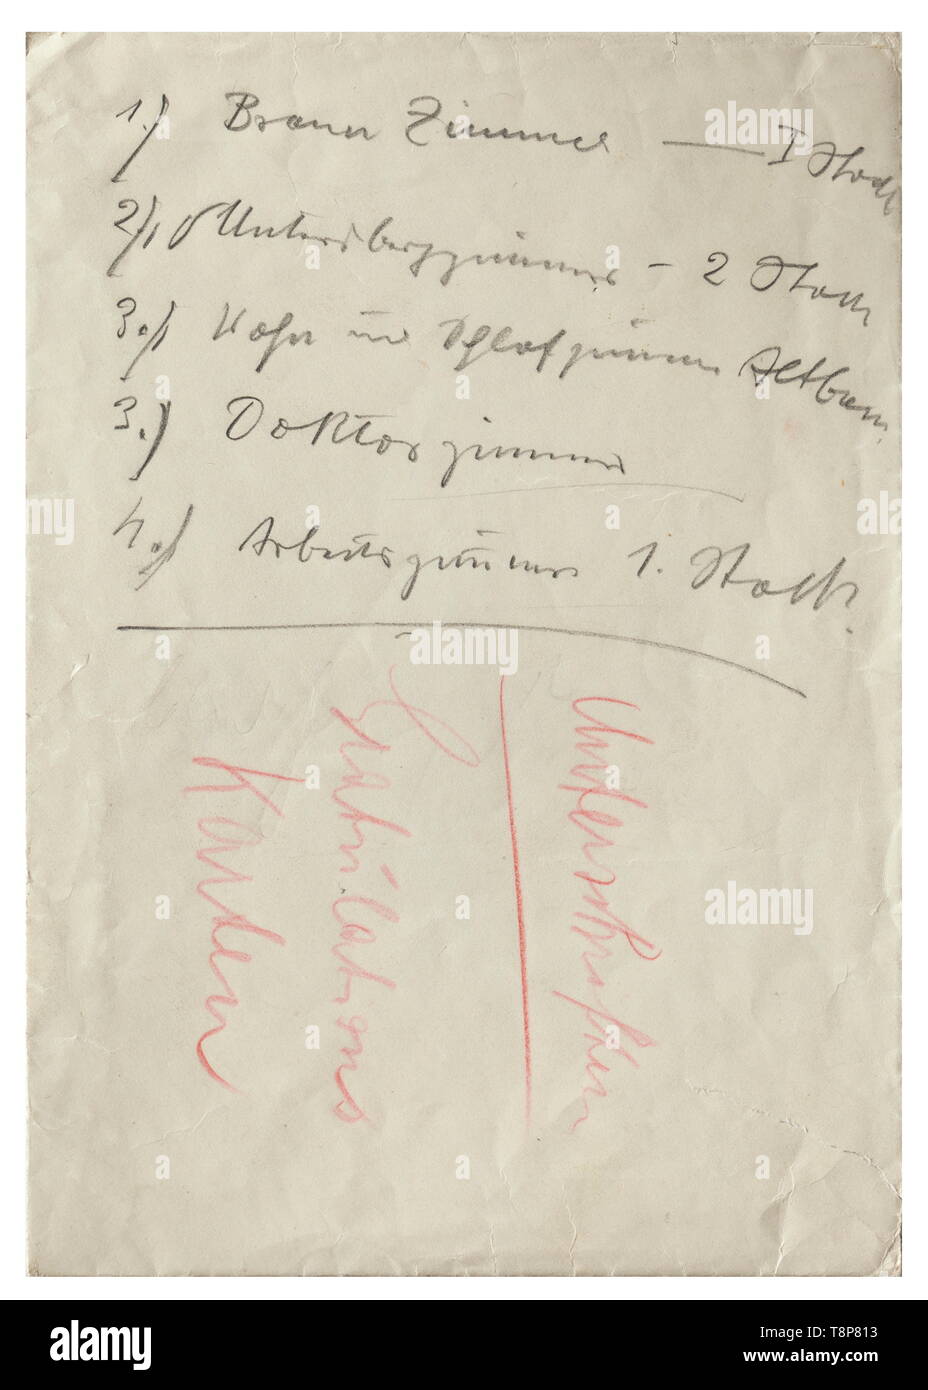 1.) Braun Zimmer — I Stock
2.) Untersbergzimmer - 2 Stock
3.) Wohn und Schlafzimmer Altbau
3.) Doktorzimmer
4.) Arbeitszimmer 1. Stock.
Unterschriften
Gratulations
Karten
alamy
alamy
Image ID: T8P813
www.alamy.com